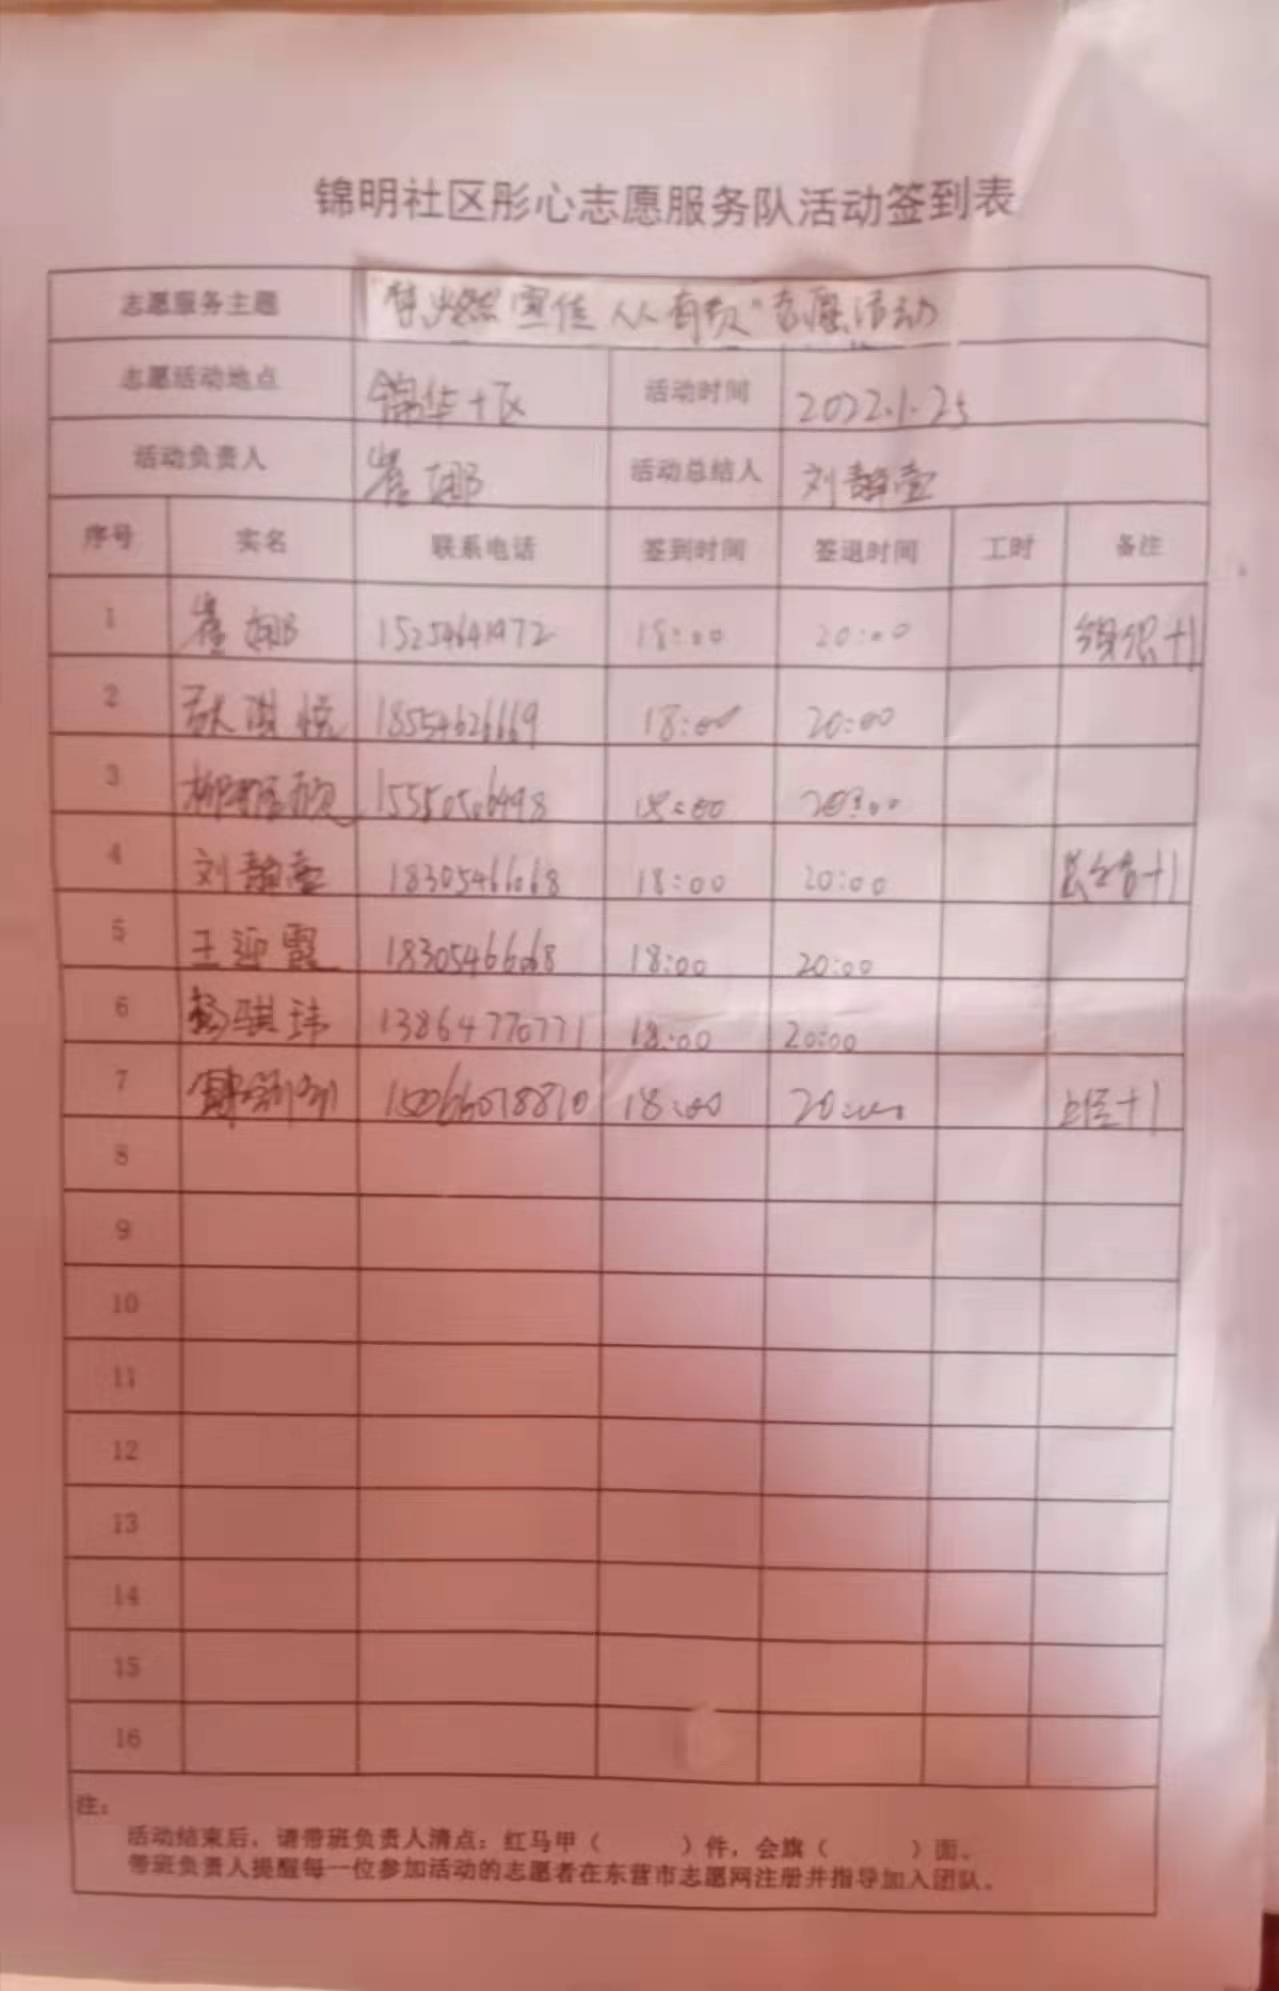 锦明社区彤心志愿服务队活动签到表
志愿服务主题 禁燃宣传 人人有责"志愿活动
志愿活动地点 锦华十区 活动时间 2022.1.25
活动负责人 崔娜 活动总结人 刘
序号 实名 联系电话 签到时间 签退时间 工时 备注
1 崔娜 15254641972 18:00 20:00 +1
2 18554626669 18:00 20:00
3 15550506498 18:00 20:00
4 刘 18305466068 18:00 20:00 总结+1
5 王迎霞 18305466068 18:00 20:00
6 杨骐玮 13864770771 18:00 20:00
7 15066078810 18:00 20:00 上传+1
8
9
10
11
12
13
14
15
16
注：
活动结束后，请带班负责人清点：红马甲（ ）件，会旗（ ）面。
带班负责人提醒每一位参加活动的志愿者在东营市志愿网注册并指导加入团队。